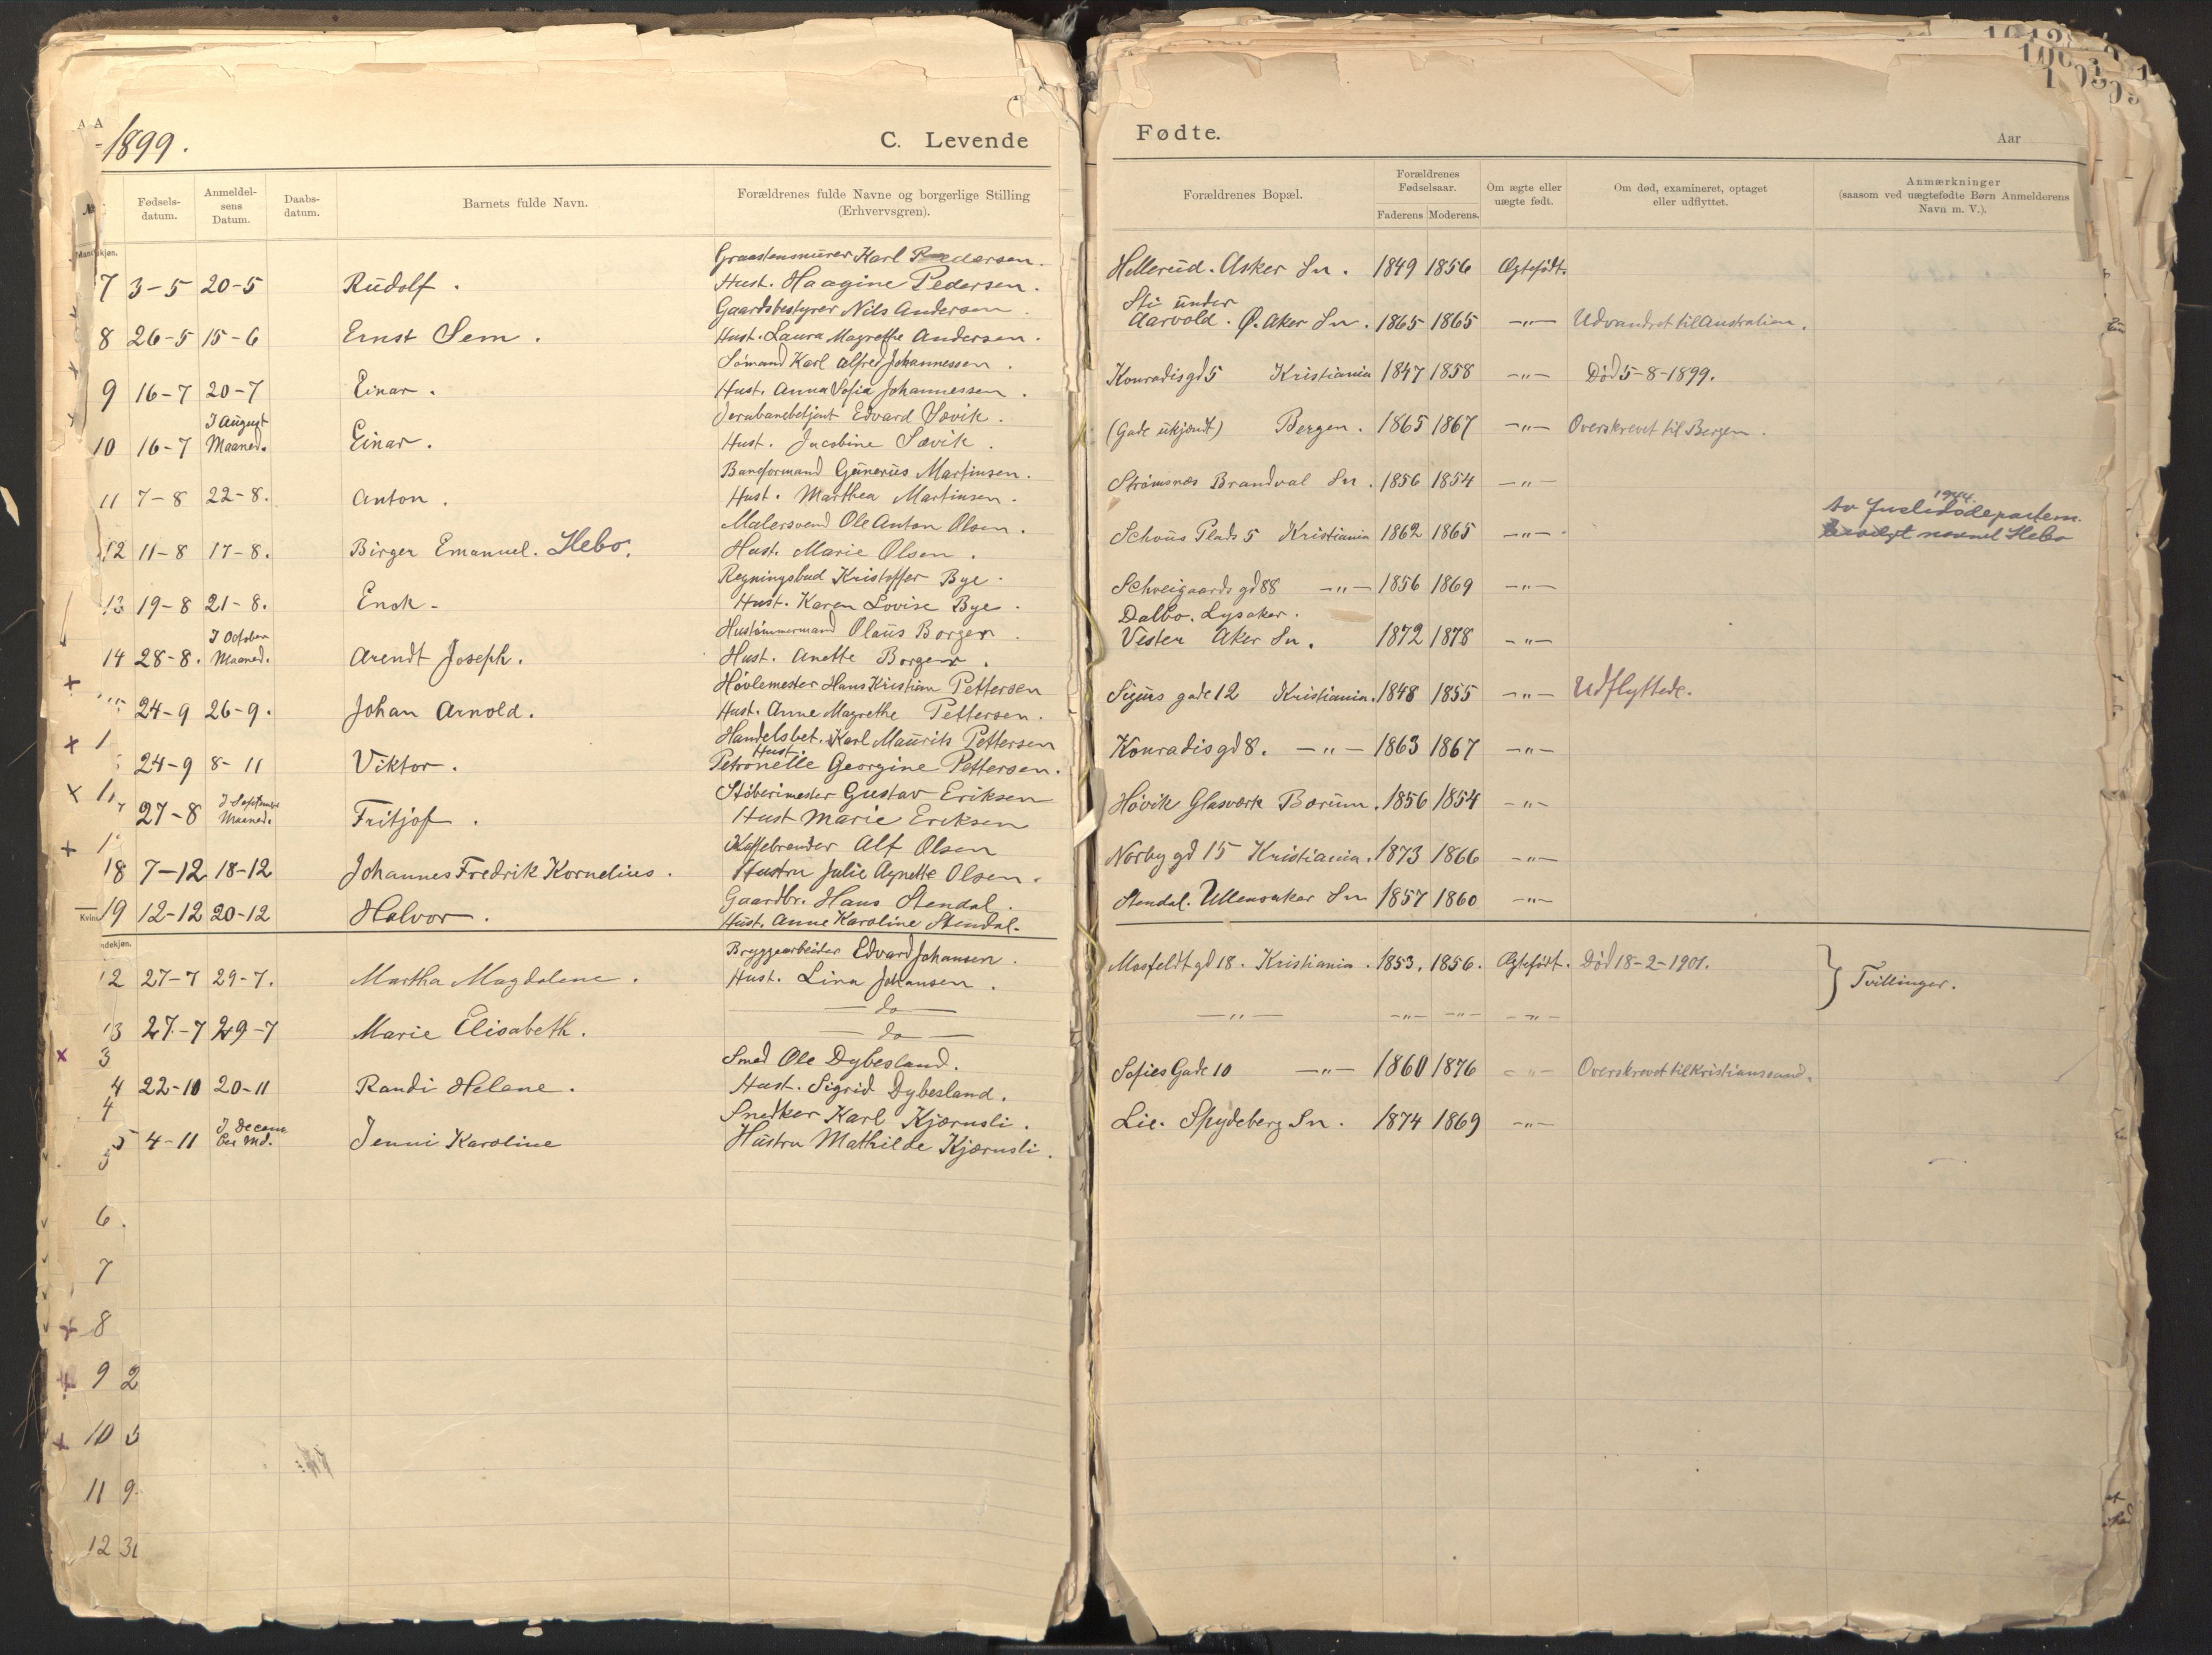 1899.
C. Levende Fødte.
Aar
№
Fødsels-datum.
Anmeldelsens Datum.
Daabs-datum.
Barnets fulde Navn.
Forældrenes fulde Navne og borgerlige Stilling (Erhvervsgren).
Forældrenes Bopæl.
Forældrenes Fødselsaar.
Faderens Moderens.
Om ægte eller uægte født.
Om død, examineret, optaget eller udflyttet.
Anmærkninger (saasom ved uægtefødte Børn Anmelderens Navn m. V.).
Graastensmurer Karl Pedersen.
7 3-5 20-5 Rudolf. Hust. Haagine Pedersen. Hellerud. Asker Sn. 1849 1856 Ægtefødt.
Gaardsbestyrer Nils Andersen. Sti under
8 26-5 15-6 Ernst Sem. Hust. Laura Magrethe Andersen. Aarvold. Ø. Aker Sn. 1865 1865 —"— Udvandret til Australien.
Sømand Karl Alfred Johannessen.
9 16-7 20-7 Einar. Hust. Anna Sofia Johannessen. Konradisgd 5 Kristiania 1847 1858 —"— Död 5-8-1899.
I August Jernbanebetjent Edvard Søvik.
10 16-7 Maaned. Einar. Hust. Jacobine Søvik. (Gade ukjendt) Bergen. 1865 1867 —"— Overskrevet til Bergen.
Baneformand Gunerius Martinsen.
11 7-8 22-8. Anton. Hust. Marthea Martinsen. Strömsnæs Brandval Sn. 1856 1854 —"—
Malersvend Ole Anton Olsen. 1944. Av Justisdepartem.
12 11-8 17-8. Birger Emanuel. Hebo. Hust. Marie Olsen. Schous Plads 5 Kristiania 1862 1865 —"— bevilget navnet Hebo
Regningsbud Kristoffer Bye.
13 19-8 21-8. Enok - Hust. Karen Lovise Bye. Schveigaards gd 88 —"— 1856 1869 —"—
I October Hustömmermand Olaus Borgen. Dalbo. Lysaker.
14 28-8. Maaned. Arendt Joseph. Hust. Anette Borgen. Vester Aker Sn. 1872 1878 —"—
Hövlemester Hans Kristian Pettersen
24-9 26-9. Johan Arnold. Hust. Anne Magrethe Pettersen. Sigurs gade 12 Kristiania. 1848 1855 —"— Udflyttede.
Handelsbet. Karl Maurits Pettersen
Hust.
24-9 8-11 Viktor. Petronelle Georgine Pettersen. Konradisgd 8. —"— 1863 1867 —"—
I September Stöberimester Gustav Eriksen
27-8 Maaned. Fritjof. Hust Marie Eriksen Hövik Glasværk Bærum. 1856 1854 —"—
Kaffebrender Alf Olsen
18 7-12 18-12 Johannes Fredrik Kornelius. Hustru Julie Agnette Olsen. Norby gd 15 Kristiania. 1873 1866 —"—
Gaardbr. Hans Stendal.
19 12-12 20-12 Halvor. Hust. Anne Karoline Stendal. Stendal. Ullensaker Sn 1857 1860 —"—
Bryggearbeider Edvard Johansen.
12 27-7 29-7. Martha Magdalene. Hust. Lina Johansen. Mosfeldt gd 18. Kristiania. 1853. 1856. Ægtefödt. Död 18-2-1901. } Tvillinger.
— do —
13 27-7 29-7 Marie Elisabeth. — do — —"— —"— —"— —"—
3 Smed Ole Dybesland.
4 22-10 20-11 Randi Helene. Hust. Sigrid Dybesland. Sofies Gade 10 —"— 1860 1876 —"— Overskrevet til Kristianssand.
4 I Decem Snedker Karl Kjærnsli.
5 4-11 ber Md. Jenni Karoline Hustru Mathilde Kjærnsli. Lie. Spydeberg Sn. 1874 1869 —"—
6.
7
8
9 2
10
11 9.
12 31